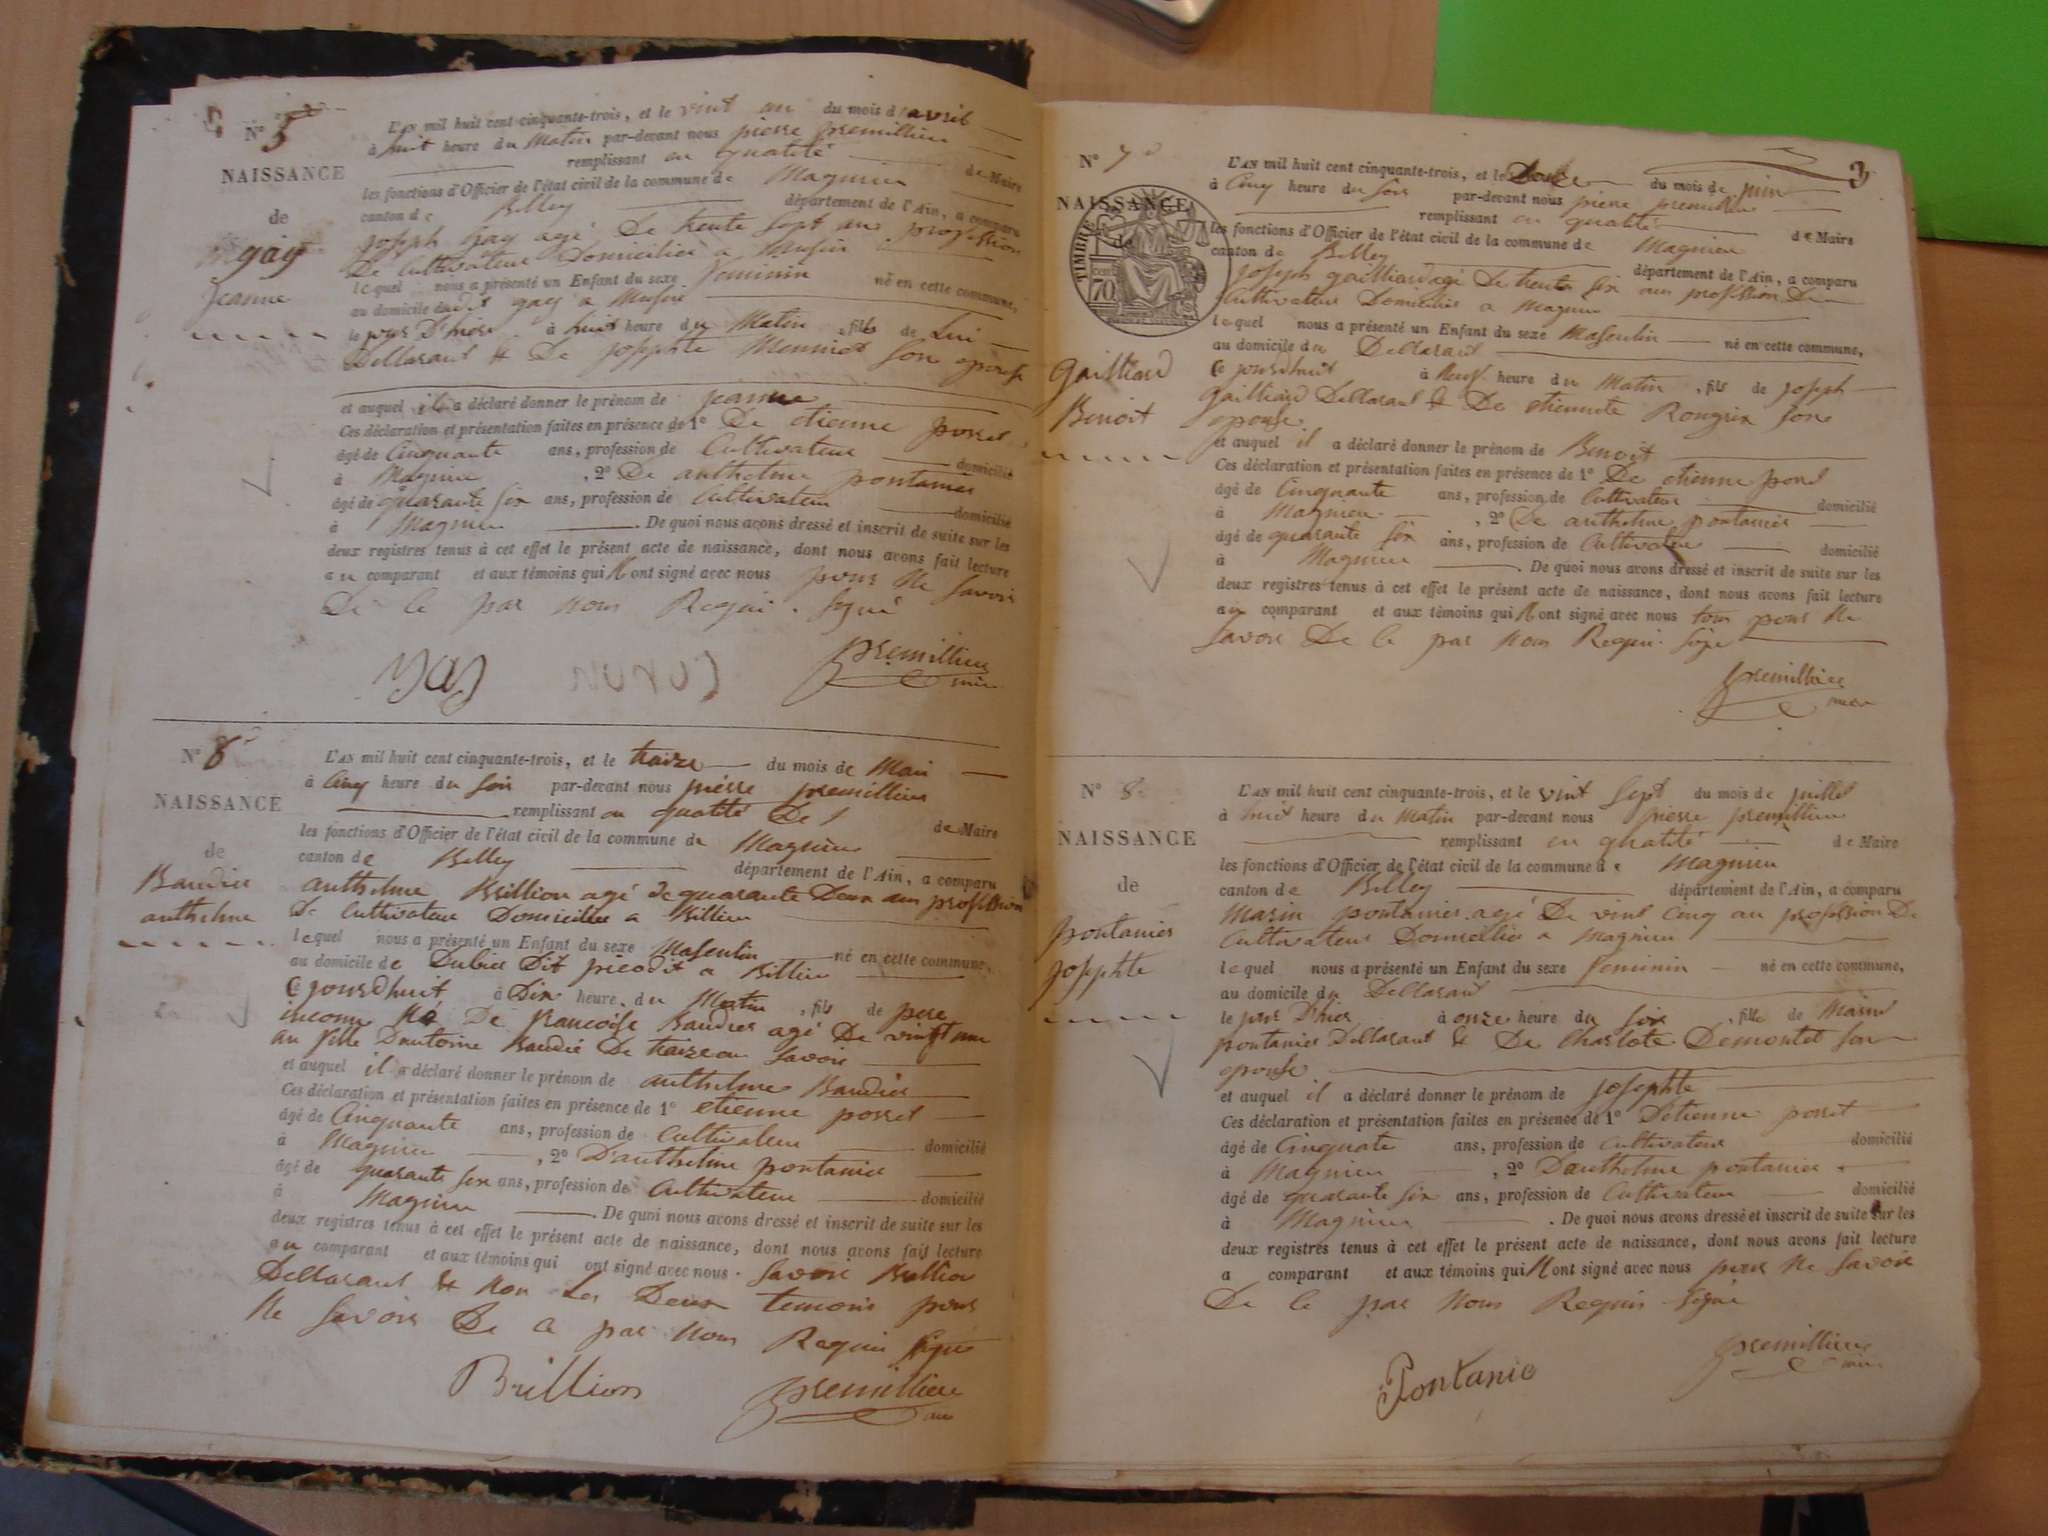 N° 5
NAISSANCE
de
gay
Jeanne
L'AN mil huit cent cinquante-trois, et le vint un du mois d'avril
à huit heure du Matin par-devant nous pierre premillieu
remplissant en qualité de Maire
les fonctions d'Officier de l'état civil de la commune de Magnieu
canton de Belley département de l'Ain, a comparu
joseph gay agé De trente sept ans profession
De Cultivateur Domicilié a
lequel nous a présenté un Enfant du sexe feminin né en cette commune,
au domicile dudit gay a
le jour D'hier à huit heure du Matin , fille de Lui
Dellarant & De josephte Meunier son epouse
et auquel il a déclaré donner le prénom de jeanne
Ces déclaration et présentation faites en présence de 1° De etienne porret
âgé de Cinquante ans, profession de Cultivateur domicilié
à Magnieu , 2° De anthelme pontanier
âgé de quarante six ans, profession de Cultivateur domicilié
à Magnieu . De quoi nous avons dressé et inscrit de suite sur les
deux registres tenus à cet effet le présent acte de naissance, dont nous avons fait lecture
au comparant et aux témoins qui N ont signé avec nous pour Ne Savoir
De ce par Nous Requi. Signé
premillieu
mire
N° 6
NAISSANCE
de
Baudier
anthelme
L'AN mil huit cent cinquante-trois, et le traize du mois de Mai
à Cinq heure du soir par-devant nous pierre premillieu
remplissant en qualité De de Maire
les fonctions d'Officier de l'état civil de la commune de Magnieu
canton de Belley département de l'Ain, a comparu
anthelme Brillion agé de quarante Deux ans profession
De Cultivateur Domicilié a Billieu
lequel nous a présenté un Enfant du sexe Masculin né en cette commune,
au domicile de Dubier Dit a Billieu
Ce jourdhuit à Dix heure du Matin , fils de pere
inconu Né De francoise Baudier agé De vint un
an fille Dantoine Baudié De traize en Savoie
et auquel il a déclaré donner le prénom de anthelme Baudier
Ces déclaration et présentation faites en présence de 1° etienne porret
âgé de Cinquante ans, profession de Cultivateur domicilié
à Magnieu , 2° D'anthelme pontanier
âgé de quarante six ans, profession de Cultivateur domicilié
à Magnieu . De quoi nous avons dressé et inscrit de suite sur les
deux registres tenus à cet effet le présent acte de naissance, dont nous avons fait lecture
au comparant et aux témoins qui ont signé avec nous . Savoir Brillion
Dellarant & Non Les Deux temoins pour
Ne Savoir De ce par Nous Requi Signé
Brillion
premillieu
N° 7
3
NAISSANCE
de
TIMBRE
70
Gailliard
Benoit
L'AN mil huit cent cinquante-trois, et le Douze du mois de juin
à Cinq heure du soir par-devant nous pierre premillieu
remplissant en qualité de Maire
les fonctions d'Officier de l'état civil de la commune de Magnieu
canton de Belley département de l'Ain, a comparu
joseph gailliard agé De trente six ans profession De
Cultivateur Domicilié a Magnieu
lequel nous a présenté un Enfant du sexe Masculin né en cette commune,
au domicile du Dellarant
Ce jourdhuit à Neuf heure du Matin , fils de joseph
gailliard Dellarant & De etiennete Rougeix son
epouse
et auquel il a déclaré donner le prénom de Benoit
Ces déclaration et présentation faites en présence de 1° De etienne porret
âgé de Cinquante ans, profession de Cultivateur domicilié
à Magnieu , 2° De anthelme pontanier
âgé de quarante six ans, profession de Cultivateur domicilié
à Magnieu . De quoi nous avons dressé et inscrit de suite sur les
deux registres tenus à cet effet le présent acte de naissance, dont nous avons fait lecture
au comparant et aux témoins qui N ont signé avec nous tous pour Ne
Savoir De ce par Nous Requi. Signé
premillieu
mire
N° 8
NAISSANCE
de
pontanier
josephte
L'AN mil huit cent cinquante-trois, et le vint sept du mois de juillet
à huit heure du Matin par-devant nous pierre premillieu
remplissant en qualité de Maire
les fonctions d'Officier de l'état civil de la commune de Magnieu
canton de Belley département de l'Ain, a comparu
Marin pontanier agé De vint Cinq an profession De
Cultivateur Domicilié a Magnieu
lequel nous a présenté un Enfant du sexe feminin né en cette commune,
au domicile du Dellarant
le jour D'hier à onze heure du soir , fille de Marin
pontanier Dellarant & De Charlote Demontet son
epouse
et auquel il a déclaré donner le prénom de josephte
Ces déclaration et présentation faites en présence de 1° D'etienne porret
âgé de Cinquate ans, profession de Cultivateur domicilié
à Magnieu , 2° D'anthelme pontanier
âgé de quarante six ans, profession de Cultivateur domicilié
à Magnieu . De quoi nous avons dressé et inscrit de suite sur les
deux registres tenus à cet effet le présent acte de naissance, dont nous avons fait lecture
a comparant et aux témoins qui N ont signé avec nous pour Ne Savoir
De ce par Nous Requis Signé
Pontanie
premillieu
mire